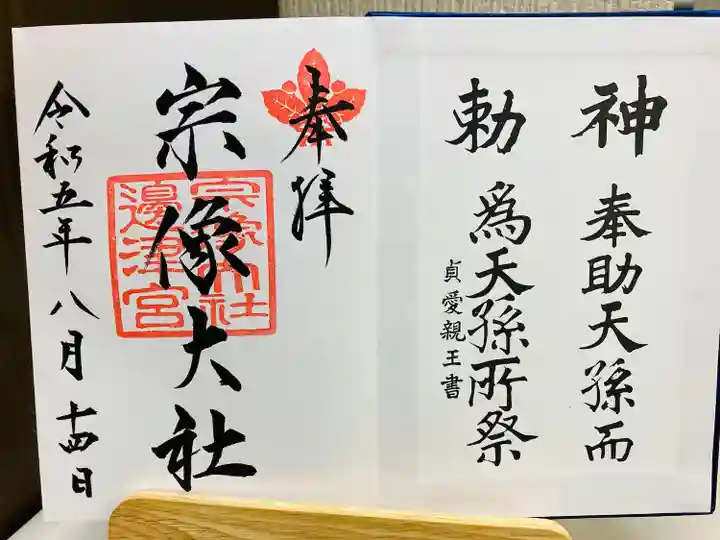 神勅
奉助天孫而
爲天孫所祭
貞愛親王書
奉拝
宗像大社
宗像大社
邊津宮
令和五年八月十四日